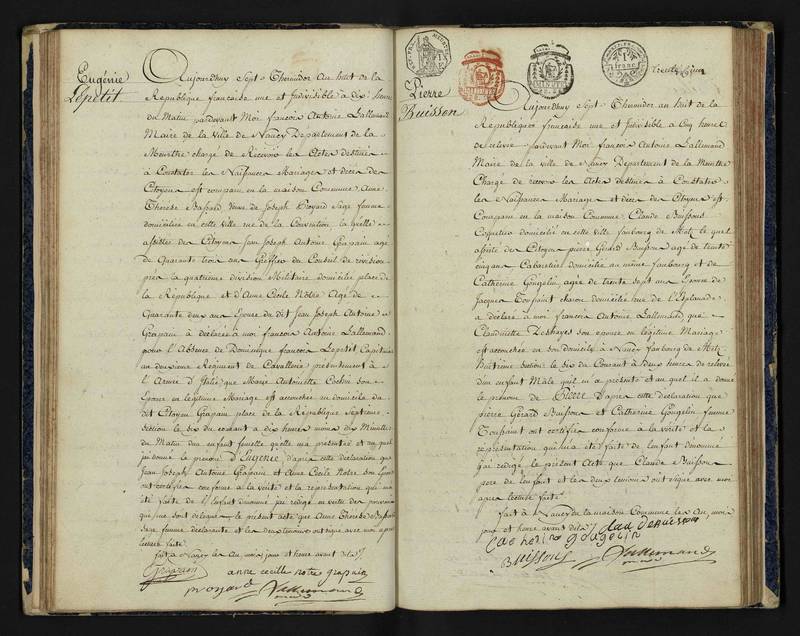 Eugénie
Lepetit
Aujourdhuy Sept Thermidor An huit de la
République française une et Indivisible à dix heures
du Matin pardevant Moi françois Antoine Lallemand
Maire de la Ville de Nancy Département de la
Meurthe chargé de Recevoir les Actes destinés
à Constater les Naissances Mariages et décès des
Citoyens est comparu en la maison Commune Anne
Thérèse Bassard Veuve de Joseph Proyard Sage femme
domiciliée en cette ville rue de la Convention, laquelle
assistée des Citoyens Jean Joseph Antoine Grapain agé
de Quarante trois ans Greffier du Conseil de révision
près la quatrième division Militaire domicilié place de
la République et d'Anne Cécile Notre Agée de
Quarante deux ans Epouse du dit Jean Joseph Antoine
Grapain à déclaré à moi françois Antoine Lallemand
pour l'Absence de Dominique françois Lepetit Capitaine
au deuxième Régiment de Cavallerie présentement à
l'Armée d'Italie que Marie Antoinette Cochon son
Epouse en légitime Mariage est accouchée au domicile du
dit Citoyen Grapain place de la République Septième
Section le six du courant à dix heures moins dix Minutes
du Matin d'un enfant femelle qu'elle m'a présenté et au quel
j'ai donné le prenom d'Eugénie, d'après cette déclaration que
Jean Joseph Antoine Grapain et Anne Cécile Notre son Epouse
ont certifiée conforme à la vérité et la représentation qui m'a
été faite de l'Enfant dénommé j'ai rédigé en vertu des pouvoirs
qui me sont délégués le présent acte que Anne Thérèse Bassard
Sage femme déclarante et les deux témoins ont signé avec moi après
lecture faite.
fait à Nancy les An, mois, jour et heure avant dits
Grapain
anne cecille notre grapain
proyard
Lallemand
maire
1 franc
trente cinq
Pierre
Buisson
Aujourdhuy Sept Thermidor an huit de la
République française une et Indivisible à Cinq heures
de relevée pardevant Moi françois Antoine Lallemand
Maire de la ville de Nancy Département de la Meurthe
Chargé de recevoir les Actes destinés à Constater
les Naissances Mariages et décès des Citoyens est
Comparu en la maison Commune Claude Buisson
Coquetier domicilié en cette ville faubourg de Metz le quel
assisté des Citoyens pierre Gérard Buisson agé de trente
cinq ans Cabaretier domicilié au même faubourg et de
Catherine Gougelin, agée de trente sept ans Epouse de
Jacques Toussaint charon domiciliée rue de l'Esplanade
a déclaré à moi françois Antoine Lallemand que
Claudinette Deshayes son épouse en légitime Mariage
est accouchée en son domicile à Nancy faubourg de Metz
Huitième Section le six du Courant à deux heures de relevée
d'un enfant Male qu'il m'a présenté et au quel il a donné
le prenom de Pierre D'après cette déclaration que
pierre Gérard Buisson et Catherine Gougelin femme
Toussaint ont certifiée conforme à la vérité et la
représentation qui m'a été faite de l'enfant dénommé
j'ai rédigé le présent Acte que Claude Buisson
père de l'enfant et les deux témoins ont signé avec moi
après lecture faite
fait à Nancy en la maison Commune les An, mois
jour et heure avant dits
Catherine gougelin
Buisson
Lallemand
maire